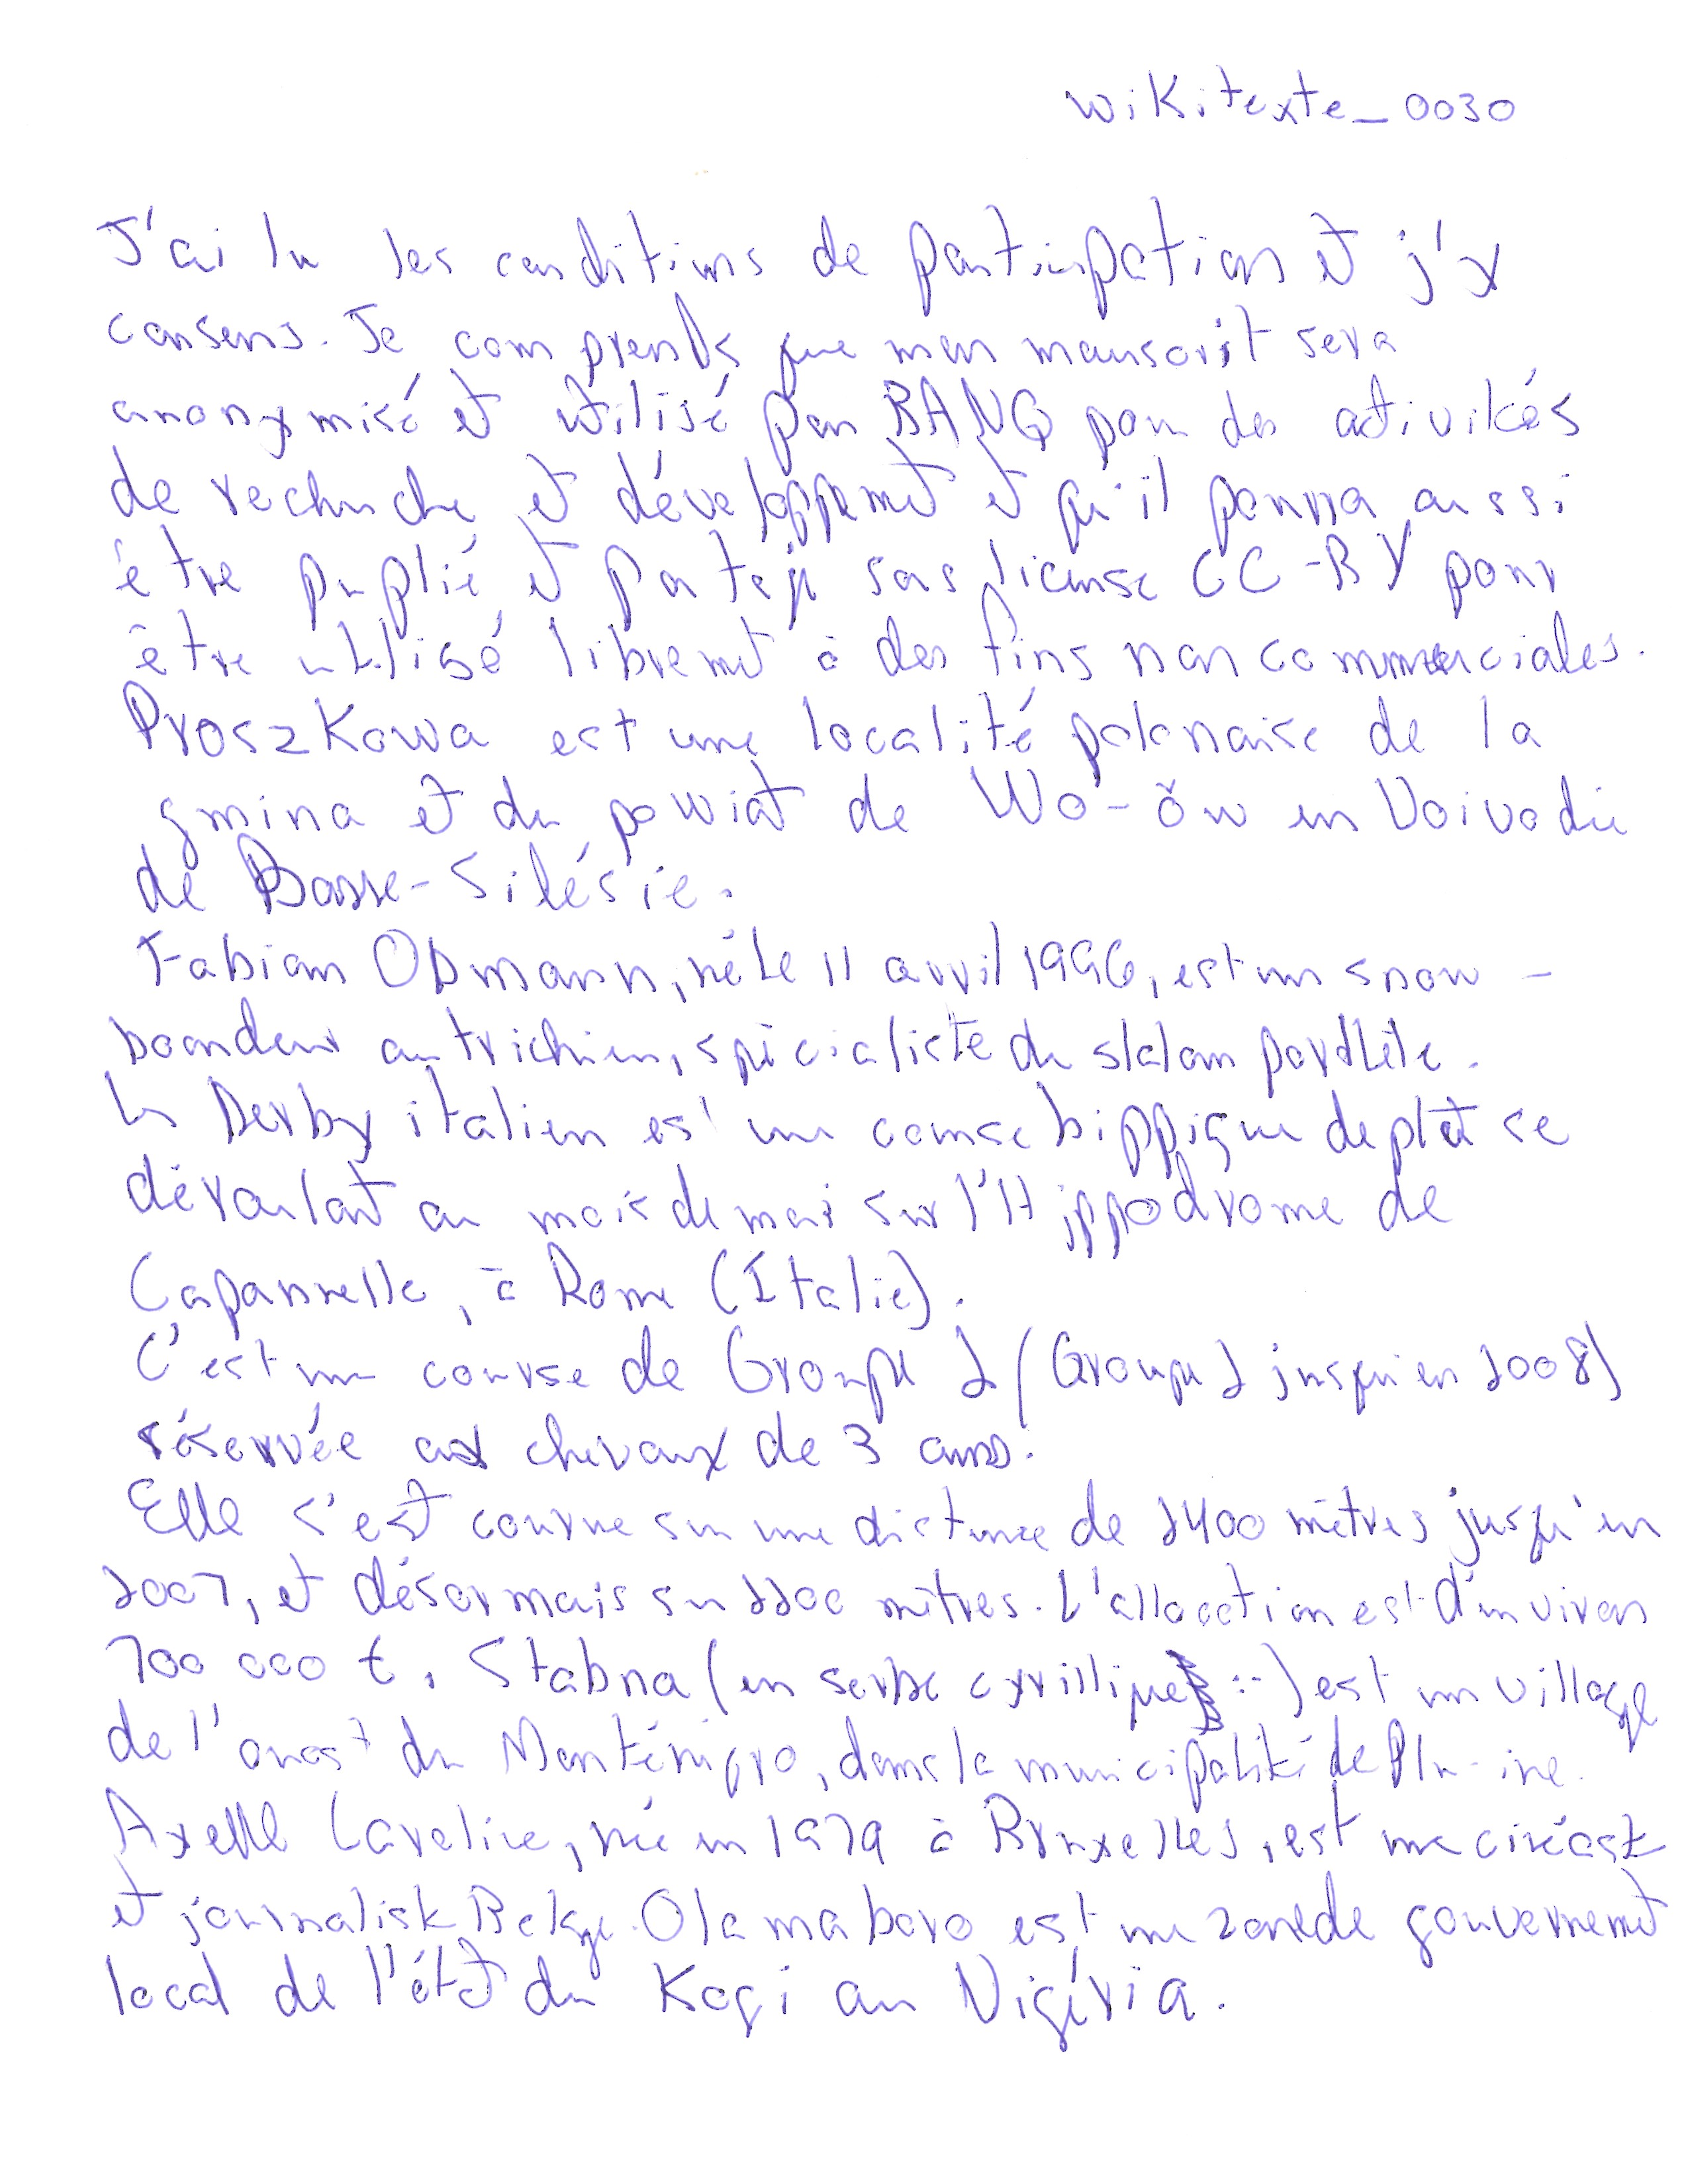 wikitexte_0030
J'ai lu les conditions de participation et j'y
consens. Je comprends que mon manuscrit sera
anonymisé et utilisé par BANQ pour des activités
de recherche et développement et qu'il pourra aussi
être puplié et partagé sous license CC-BY pour
être utilisé librement à des fins non commerciales.
Proszkowa est une localité polonaise de la
gmina et du powiat de Wo-ów en Voivodie
de Basse-Silésie.
Fabian Obmann, né le 11 avril 1996, est un snow-
boardeur autrichien, spécialiste du slalom parallèle.
Le Derby italien est une course hippique de plat se
déroulant au mois de mai sur l'Hippodrome de
Capannelle, à Rome (Italie).
C'est une course de Groupe 2 (Groupe 1 jusqu'en 2008)
réservée aux chevaux de 3 ans.
Elle s'est courue sur une distance de 2400 mètres jusqu'en
2007, et désormais sur 2200 mètres. L'allocation est d'environ
700 000 €. Stabna (en serbe cyrillique :-) est un village
de l'ouest du Monténégro, dans la municipalité de Plu-ine.
Axelle Caroline, née en 1979 à Bruxelles, est une cinéaste
et journaliste Belge. Olamaboro est une zone de gouvernement
local de l'état du Kogi au Nigéria.